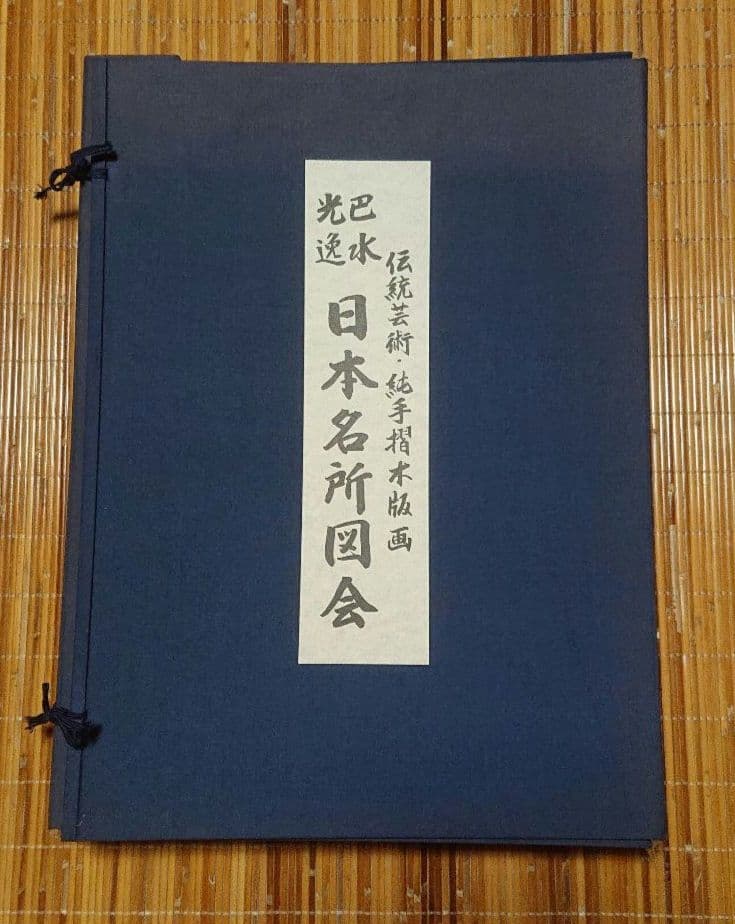 伝統芸術・純手摺木版画
巴水
光逸
日本名所図会